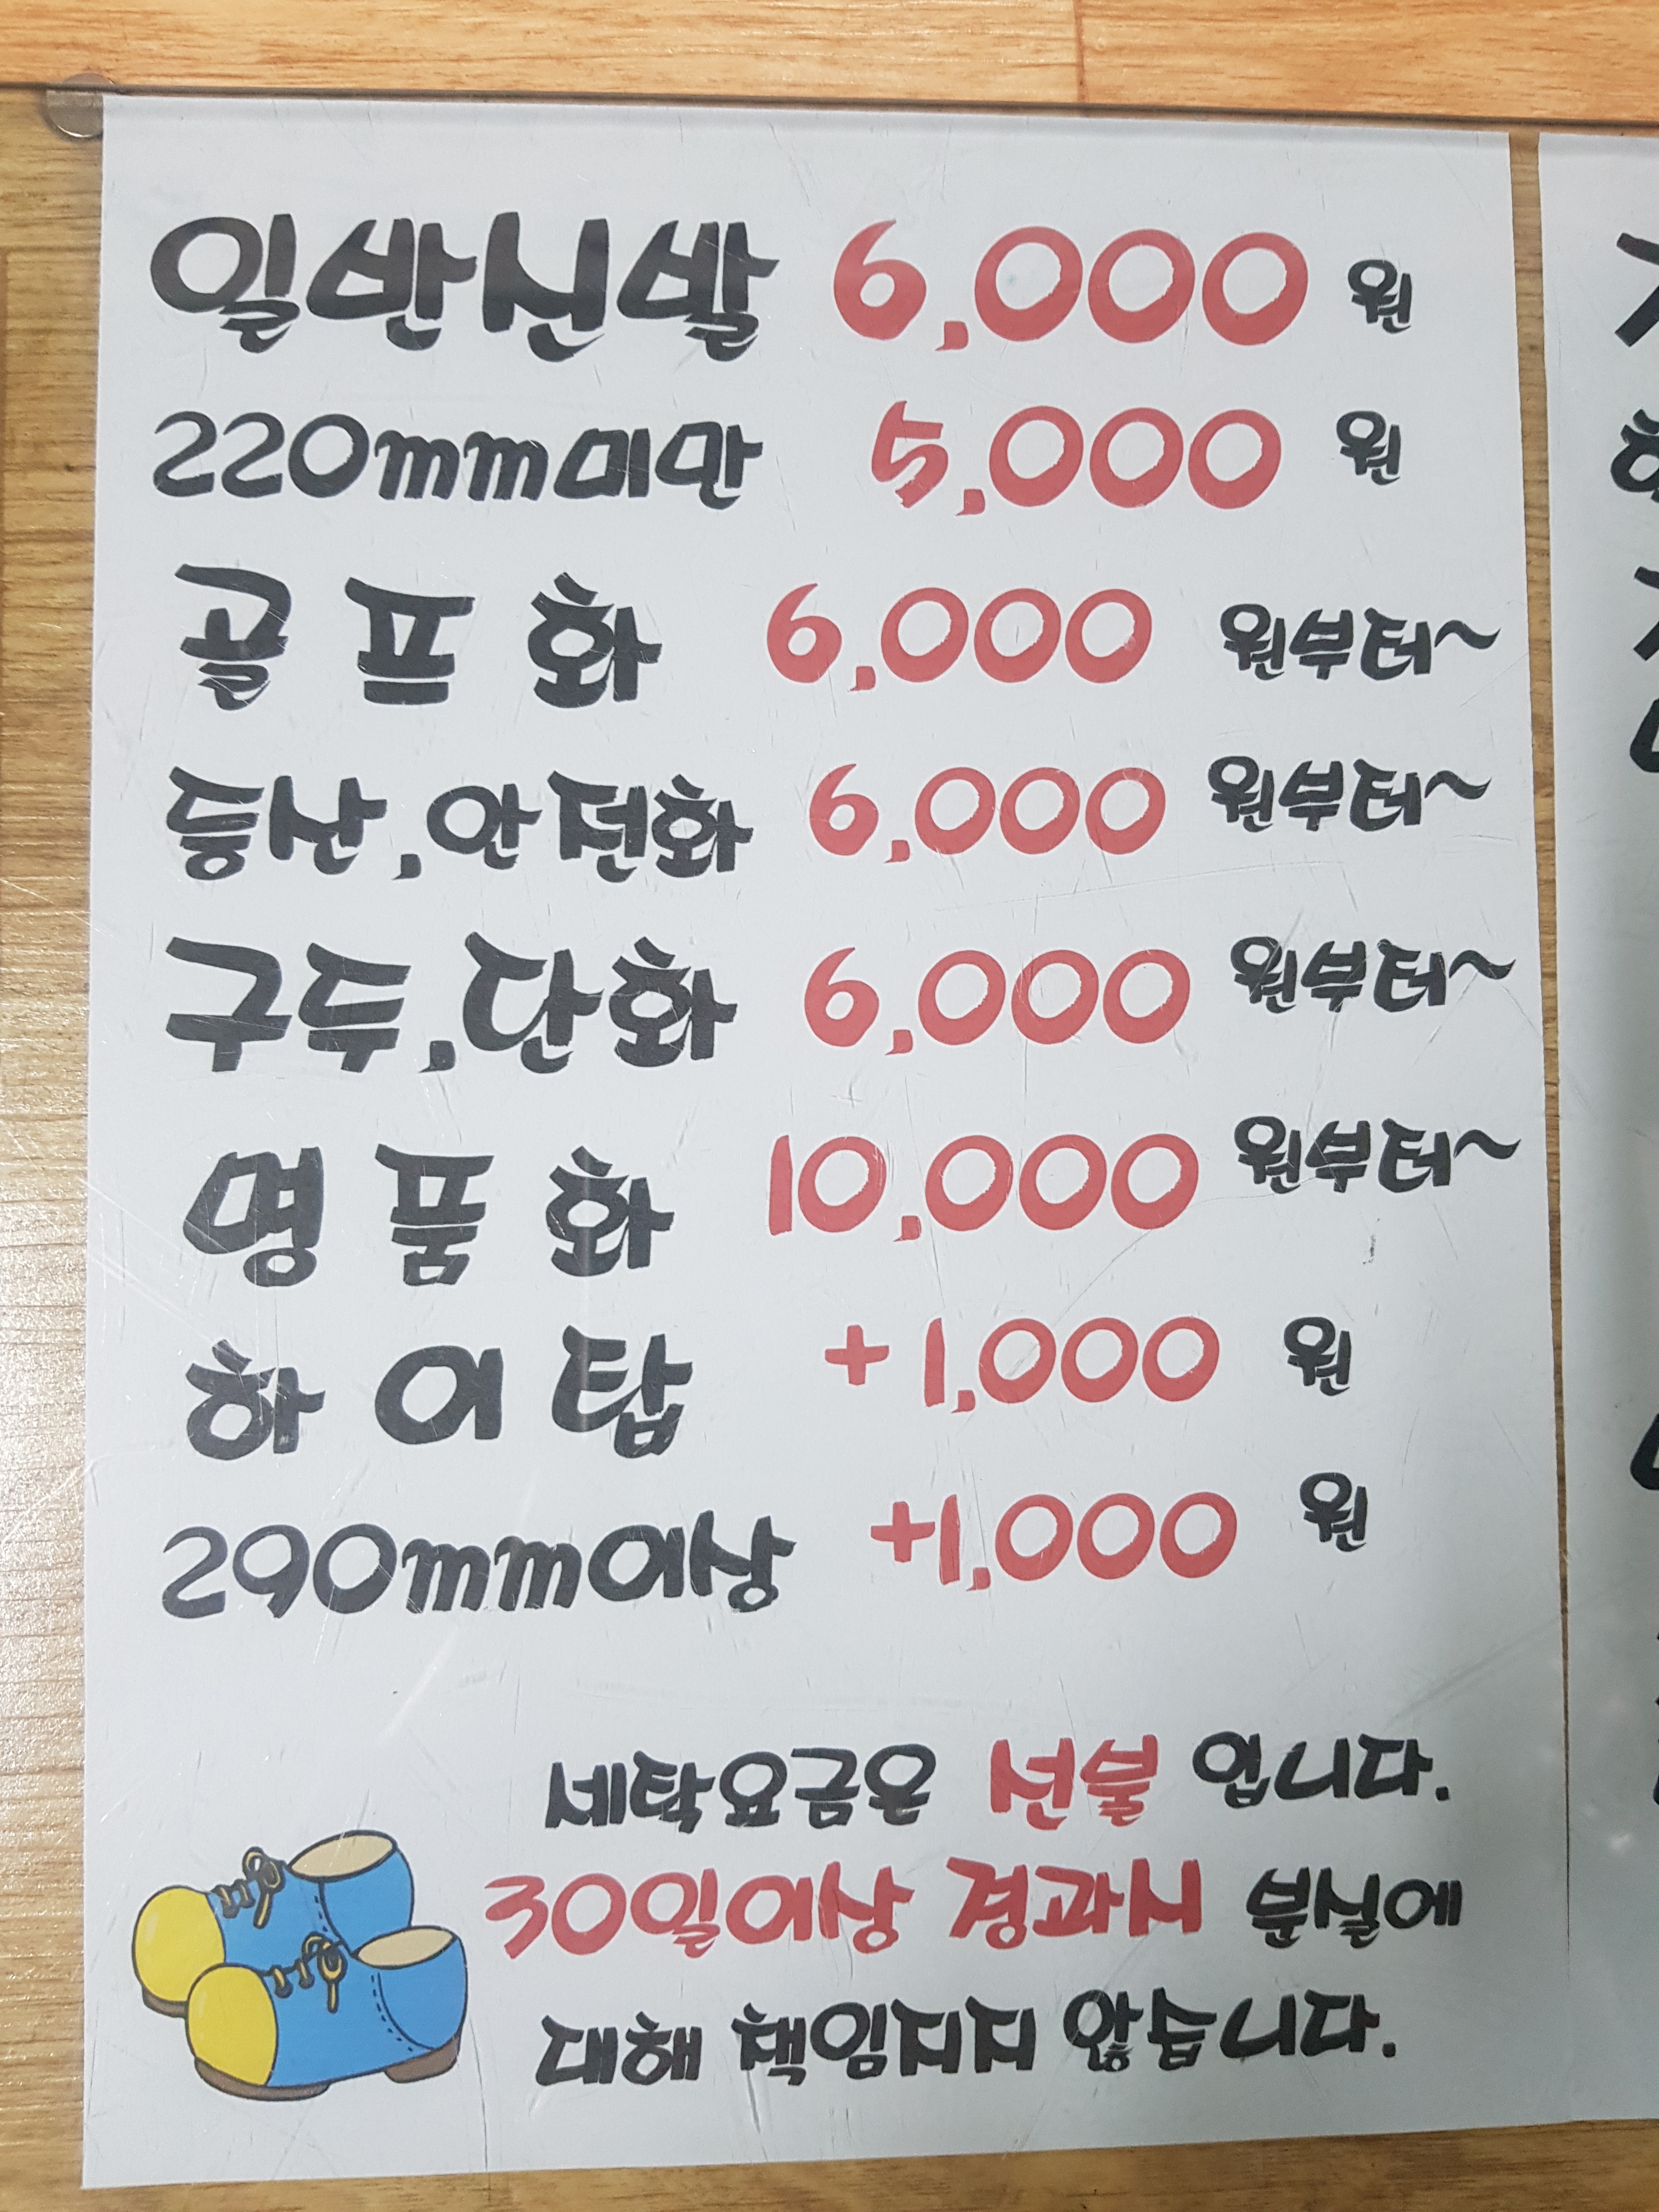 일반신발 6,000 원
220mm미만 5,000 원
골프화 6,000 원부터~
등산,안전화 6,000 원부터~
구두,단화 6,000 원부터~
명품화 10,000 원부터~
하이탑 +1,000 원
290mm이상 +1,000 원
세탁요금은 선불 입니다.
30일이상 경과시 분실에
대해 책임지지 않습니다.